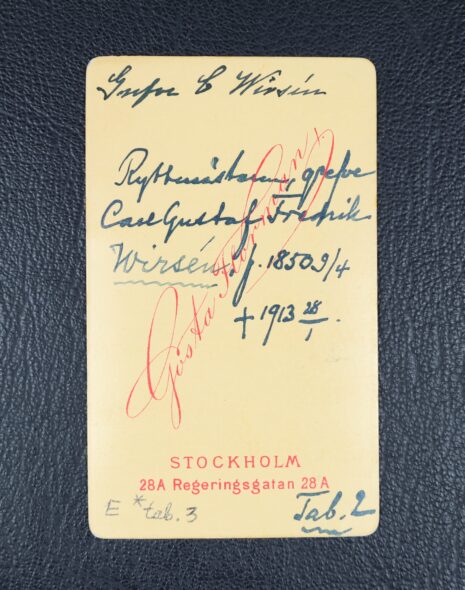 Grefve C Wirsén
Ryttmästaren, grefve
Carl Gustaf Fredrik
Wirsén, f. 1850 9/4
+ 1913 28/1.
Gösta Florman
STOCKHOLM
28A Regeringsgatan 28A
E * tab. 3
Tab. 2